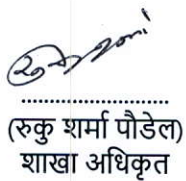 ..............................
(रुकु शर्मा पौडेल)
शाखा अधिकृत